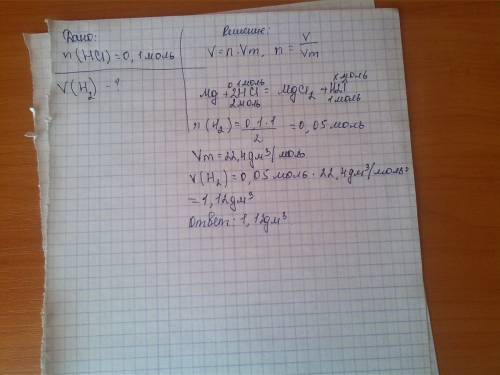 Дано:
n(HCl)=0,1 моль
V(H₂) - ?
Решение:
V=n·Vm, n = V/Vm
0,1 моль x моль
Mg + 2HCl = MgCl₂ + H2↑
2 моль 1 моль
n(H₂) = 0,1·1/2 = 0,05 моль
Vm = 22,4 дм³/моль
V(H₂) = 0,05 моль · 22,4 дм³/моль =
= 1,12 дм³
Ответ: 1,12 дм³